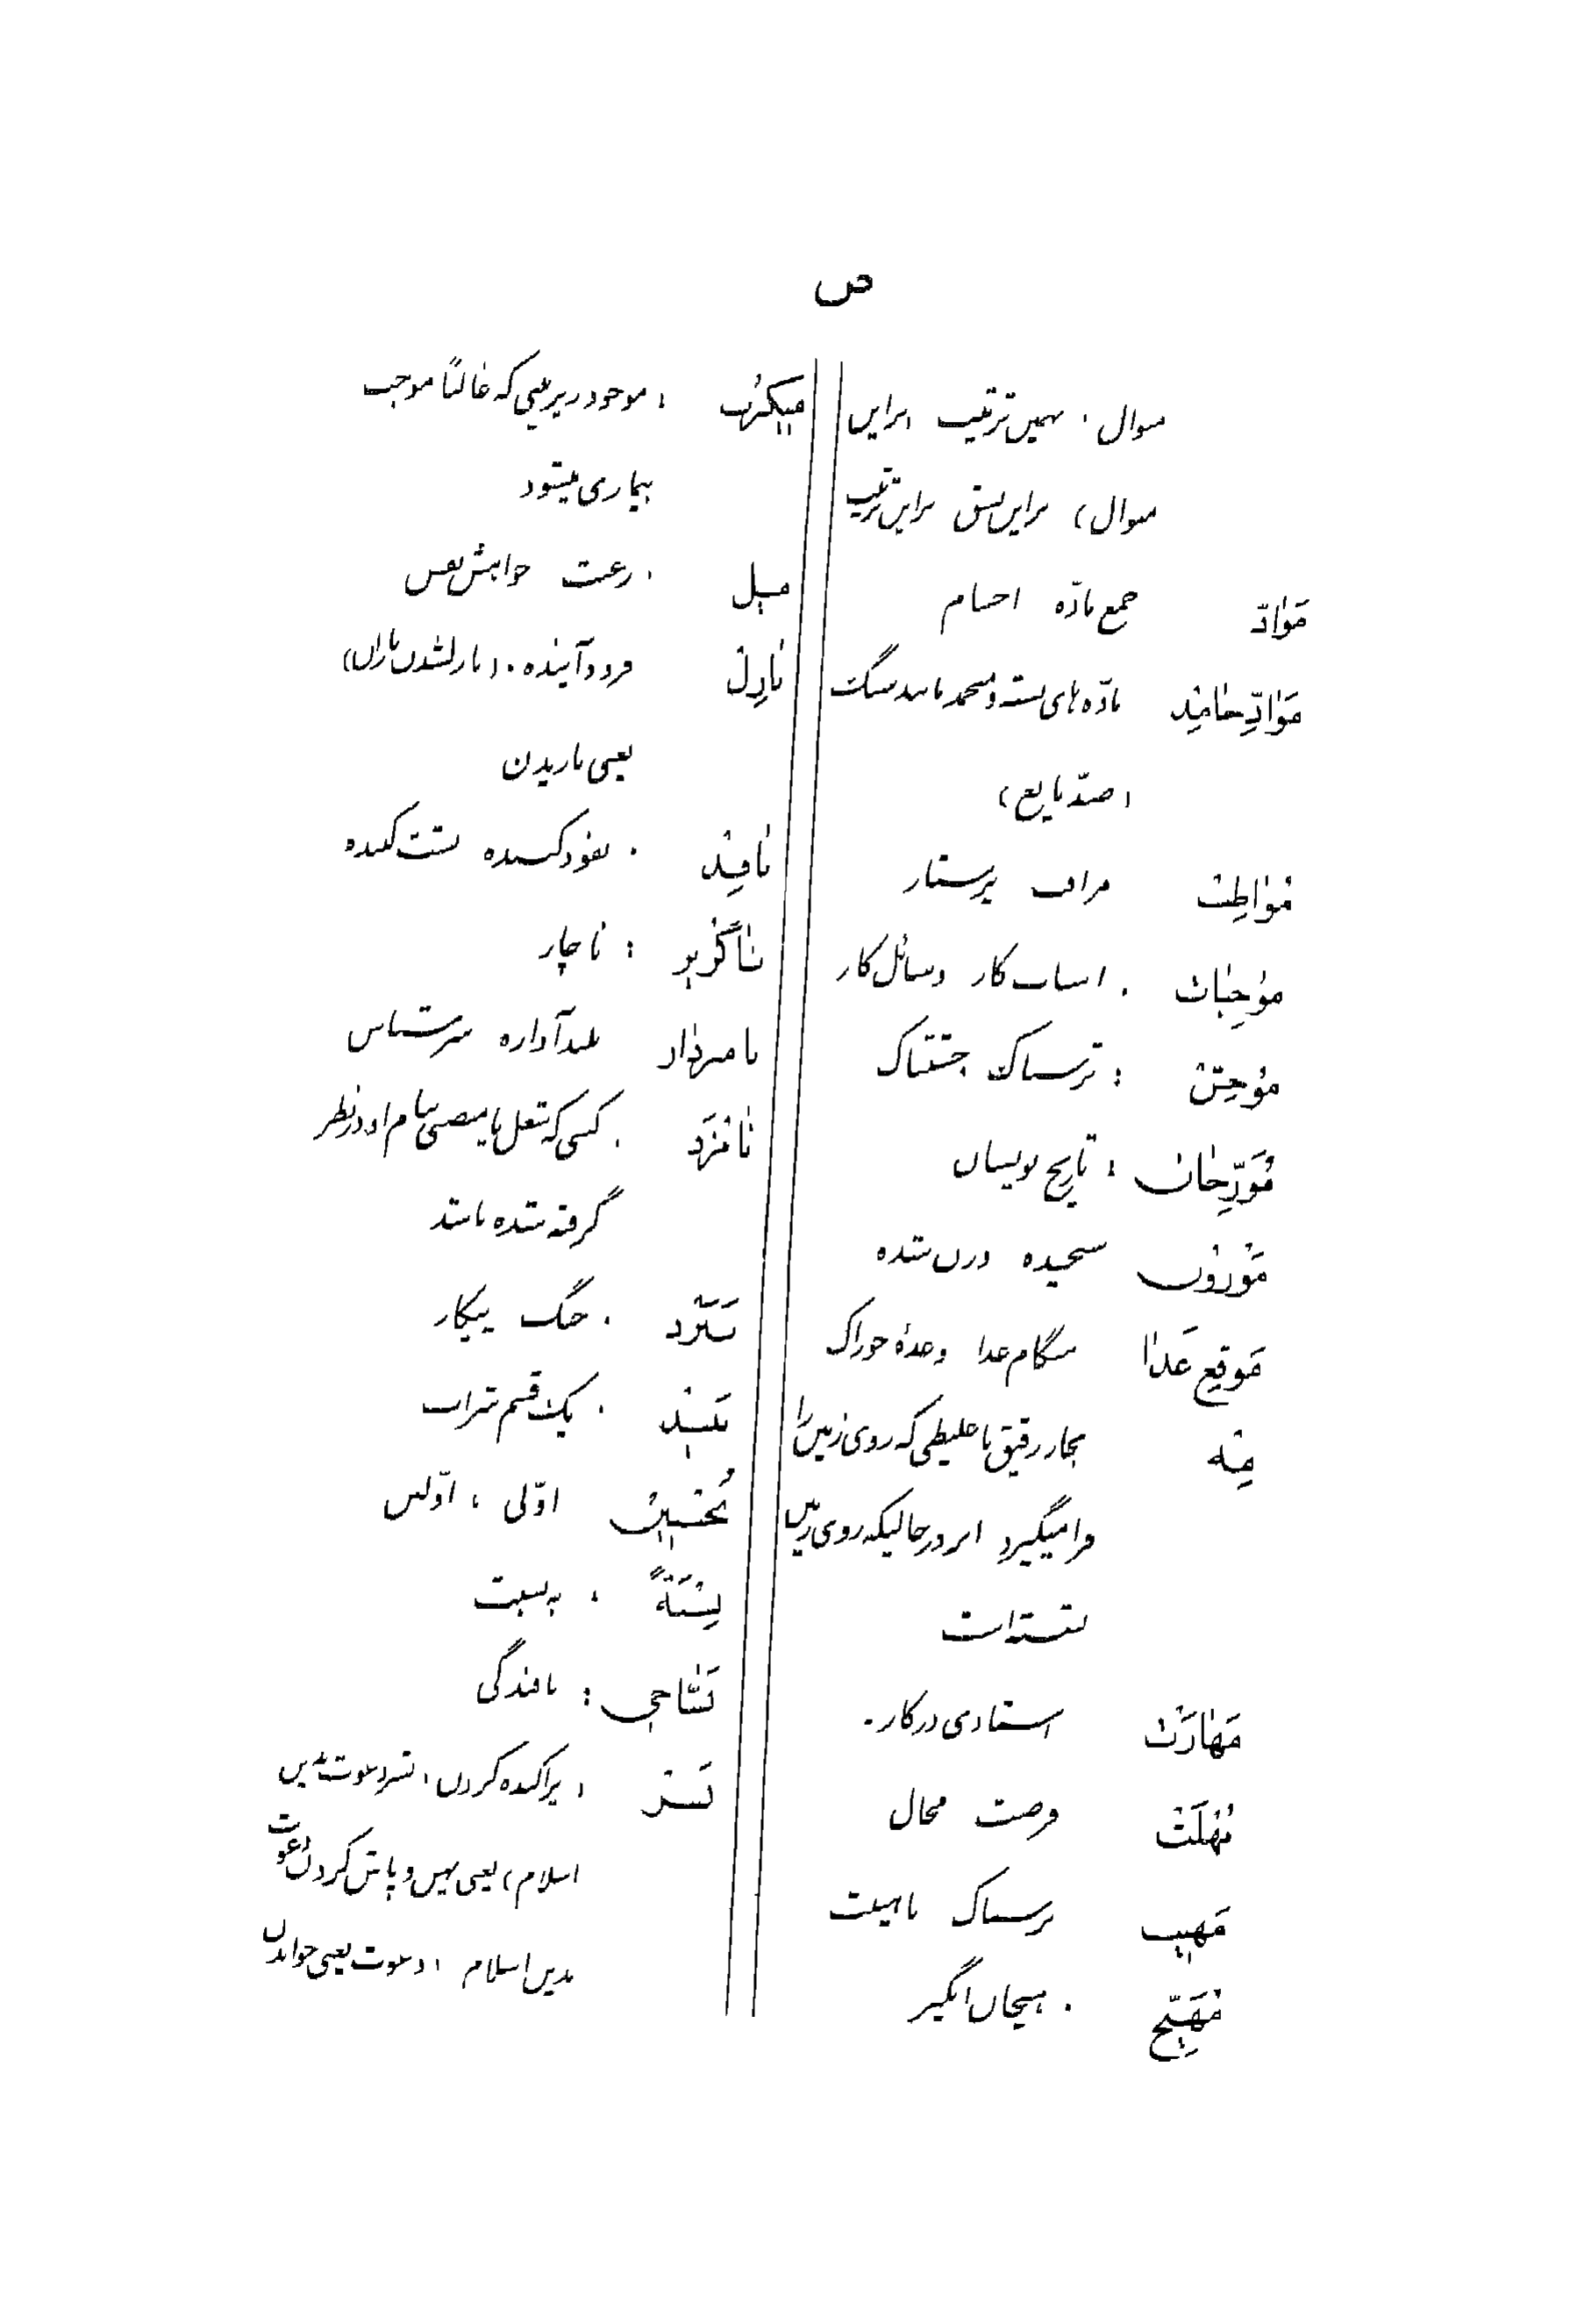 ص
منوال : بهمین ترتیب (براین
منوال) براین نسق براین ترتیب
مَوادّ جمع مادّه اجسام
مَوادِّ جامِد مادّه‌های بسته و منجمد مانند سنگ
(ضدّ مایع)
مُواظِب مراقب پرستار
موُجِبات : اسباب کار وسائل کار
موُحِش : ترسناک وحشتناک
مُوَرِّخان : تاریخ نویسان
مَوْزوُن سنجیده وزن شده
مَوقِعِ غَذا هنگام غذا وعدهٔ خوراک
مِه بخار رقیق یا غلیظی که روی زمین را
فرا میگیرد ابر در حالیکه روی زمین
نشسته است
مَهارَت استادی در کار .
مُهلَت فرصت مجال
مَهیب ترسناک با هیبت
مُهَیِّج : هیجان انگیز
میکرُب : موجود ریزه‌یی که غالباً موجب
بیماری میشود
میل : رغبت خواهش نفس
نازِل فرود آینده . (نازل شدن باران)
یعنی باریدن
نافِذ : نفوذ کننده نشت کننده
ناگُزیر : ناچار
نامبردار بلند آوازه سرشناس
نامْزَد : کسی که شغل یا منصبی بنام او در نظر
گرفته شده باشد
نَبَرْد : جنگ پیکار
نَبیذ : یک قسم شراب
نُخُستین اوّلی ، اوّلین
نِسْبَةً : به نسبت
نَسّاجی : بافندگی
نَشر : پراکنده کردن ، نشر دعوت بدین
اسلام) یعنی پهن و پاش کردن دعوت
بدین اسلام (دعوت یعنی خواندن